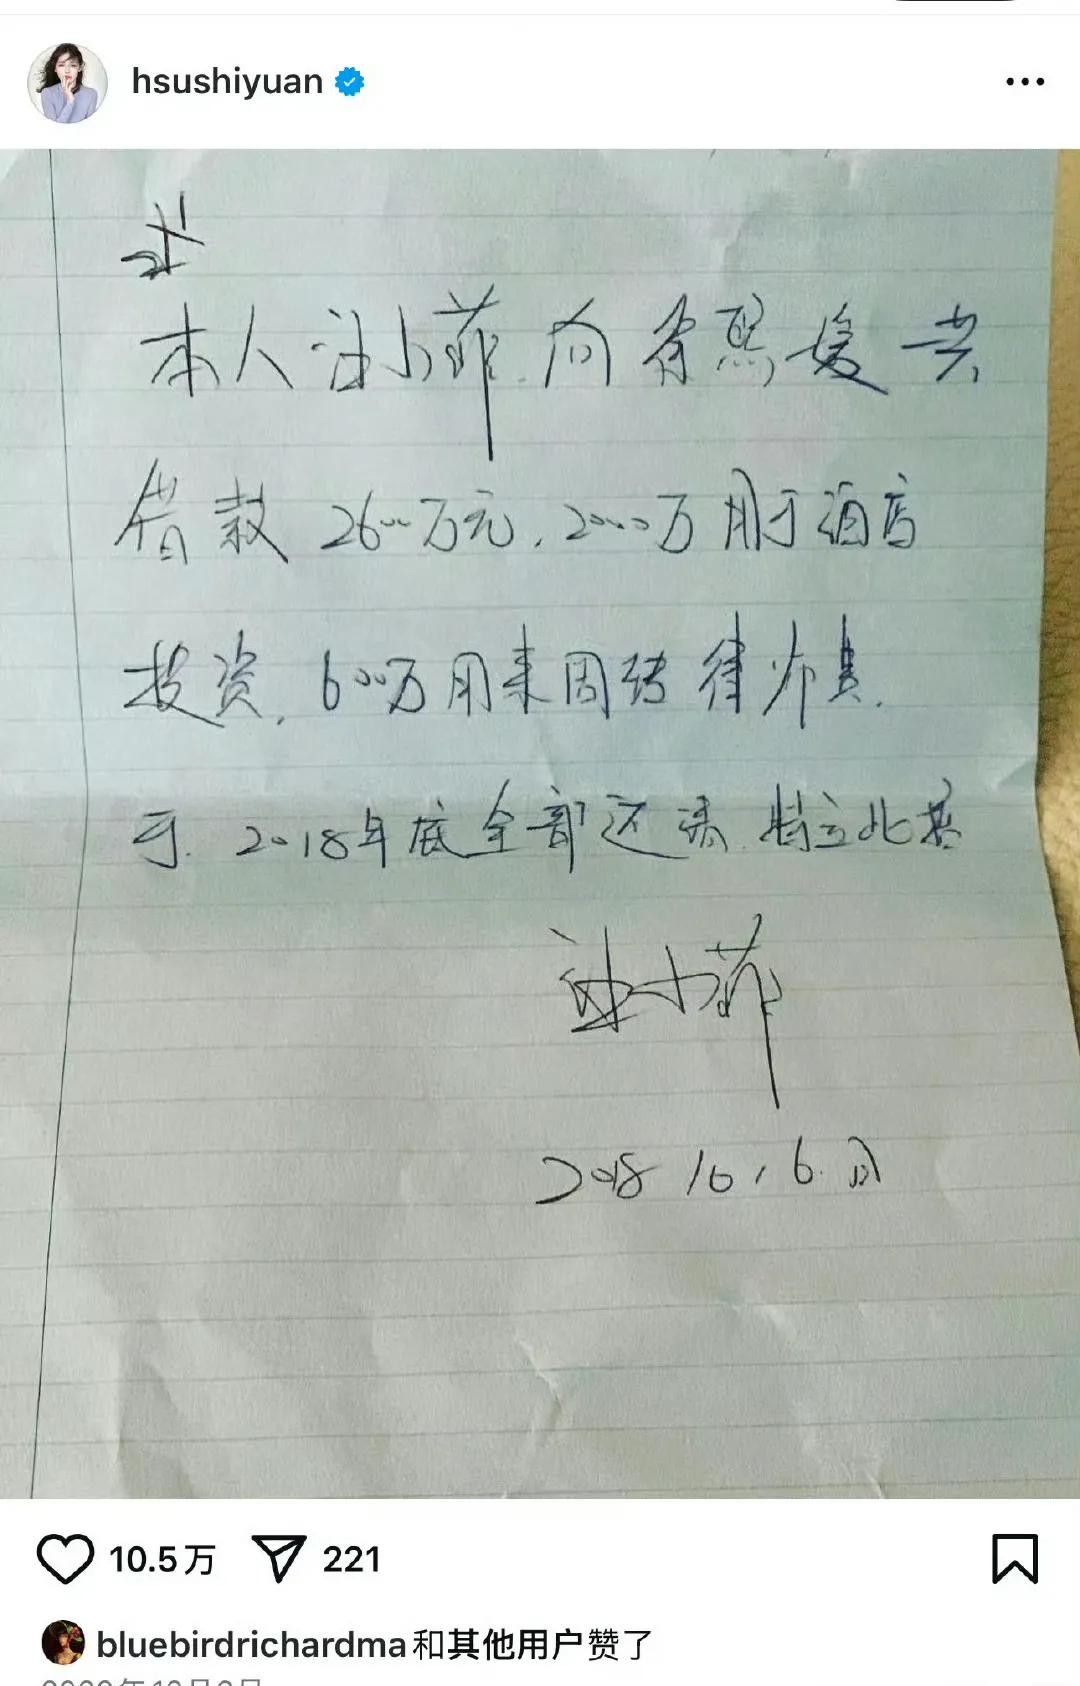 hsushiyuan
本人汪小菲向徐熙媛共
借款2600万元,2000万用于酒店
投资,600万用来周转律师费.
于.2018年底全部还清.特立此其
汪小菲
2018 10,6.日
10.5万 221
bluebirdrichardma和其他用户赞了